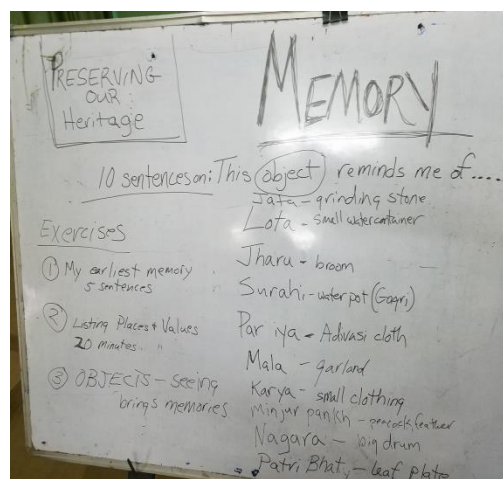 PRESERVING
OUR
Heritage
MEMORY
10 sentences on: This object reminds me of....
Exercises
① My earliest memory
5 sentences
② Listing Places & Values
20 minutes
③ OBJECTS - seeing
brings memories
Jata - grinding stone
Lota - small water container
Jharu - broom
Surahi - water pot (Gagri)
Par iya - Adivasi cloth
Mala - garland
Karya - small clothing
Minjur pankh - peacock feather
Nagara - big drum
Patri Bhat - leaf plate